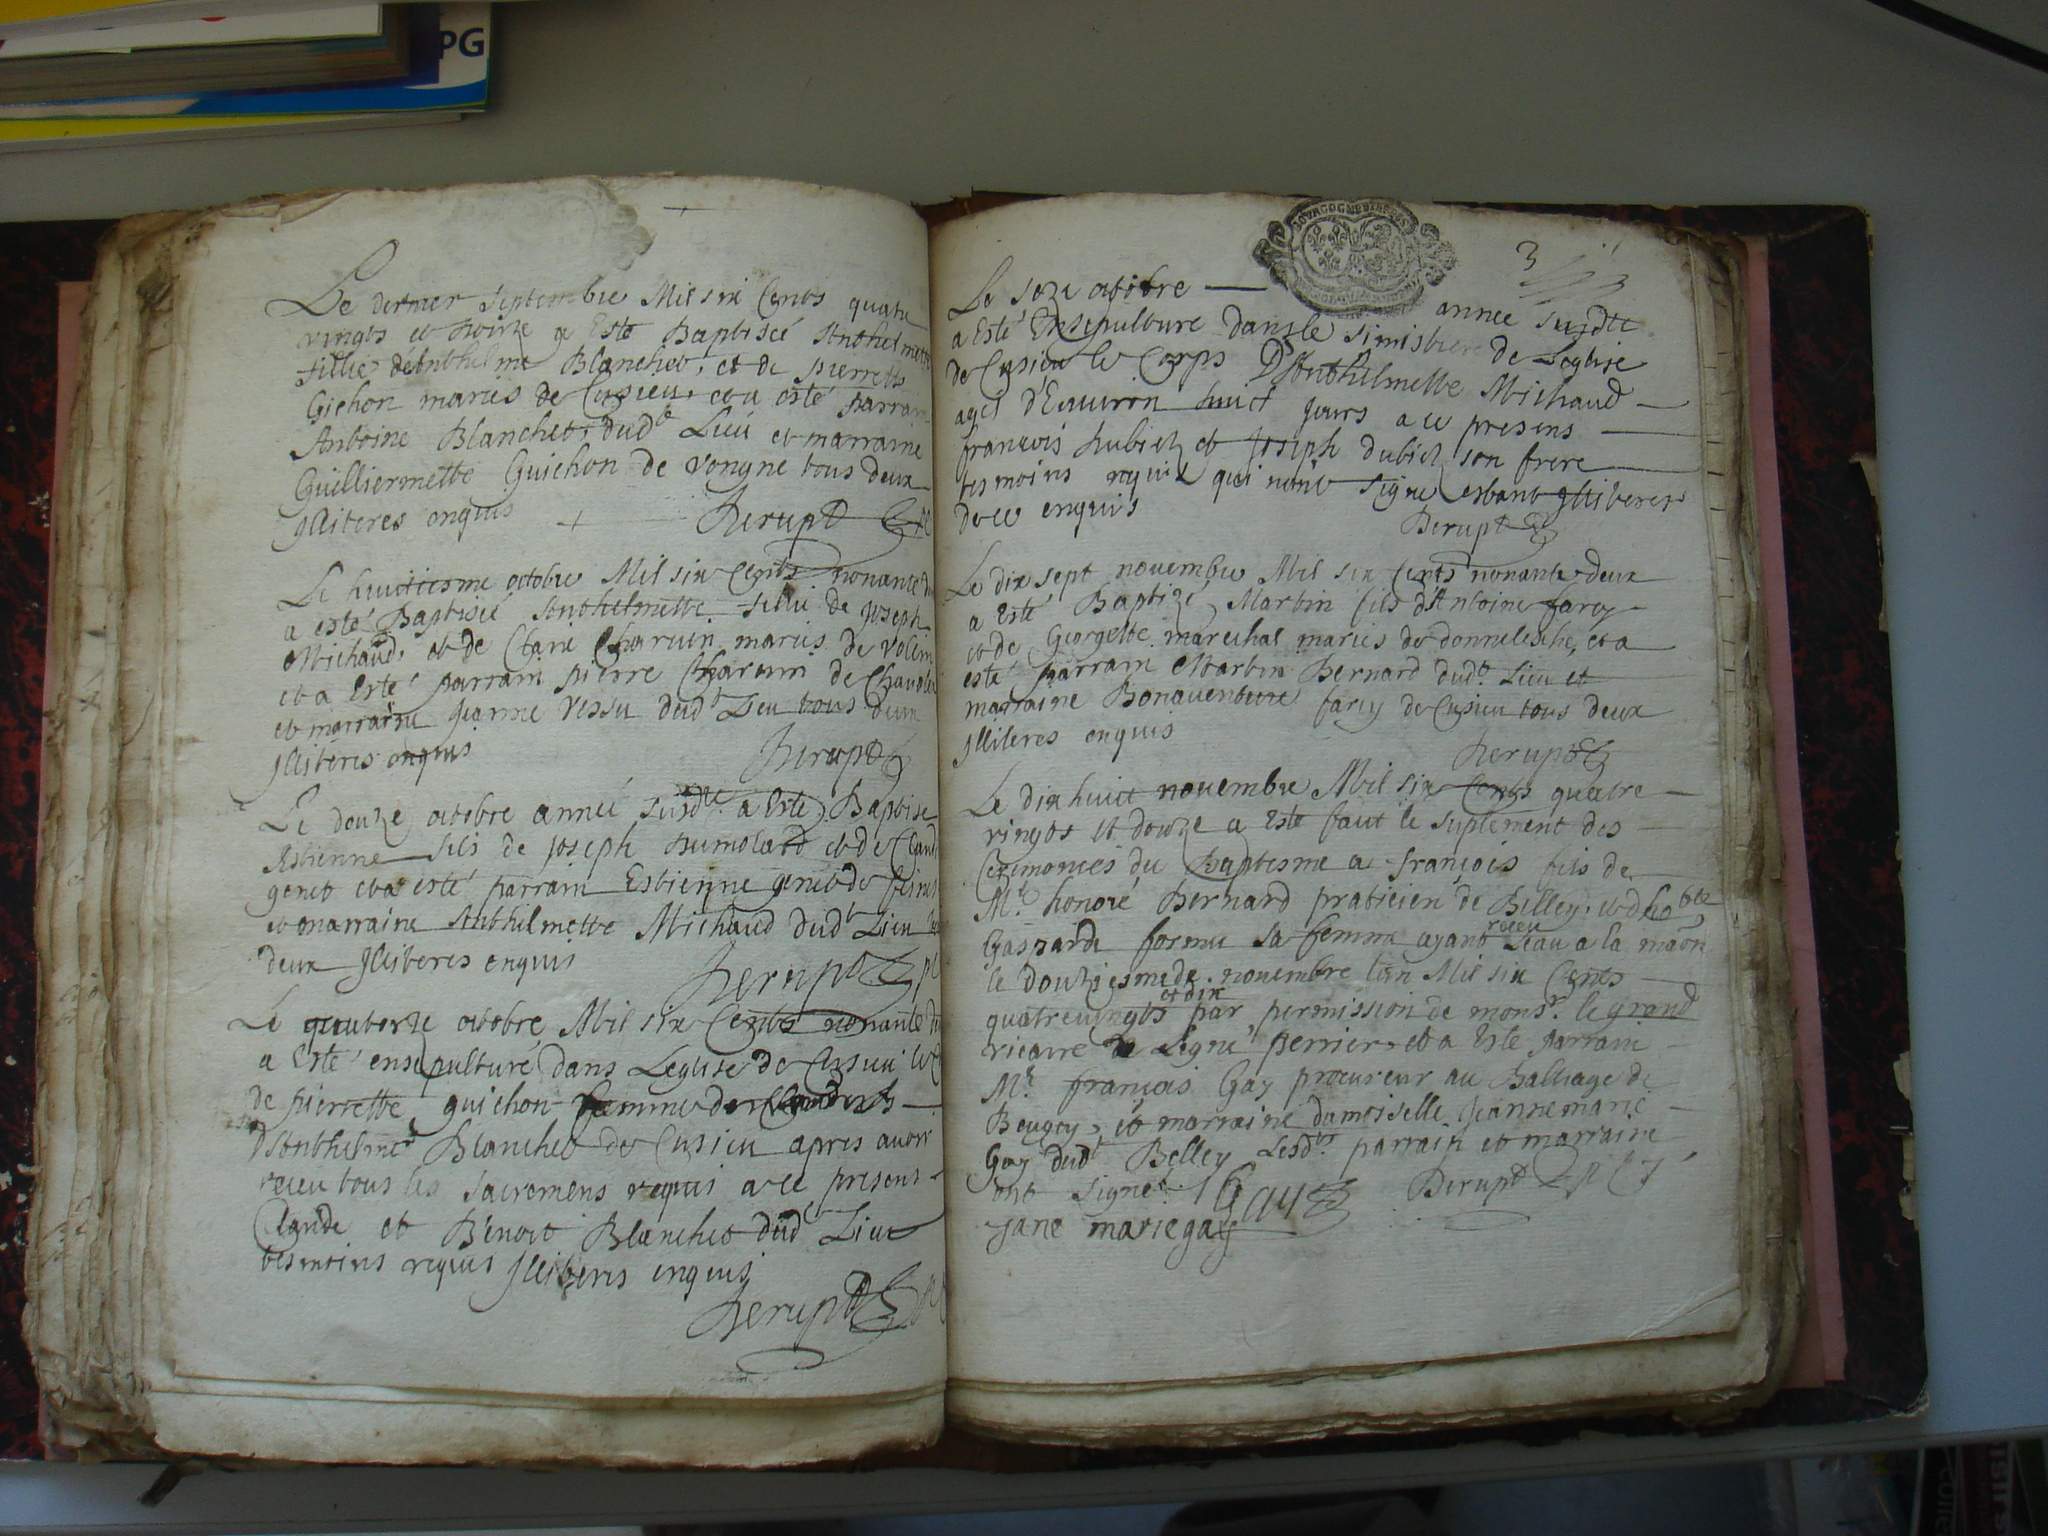 PG
Le dernier septembre Mil six Cents quatre
vingts et douze a Esté Baptiseé Anthelmette
fillie d'Anthelme Blanchet, et de pierrette
Gichon mariés de Cusieu, et a esté parrain
Antoine Blanchet dudt Lieu et marraine
Guilliermette Guichon de vongne tous deux
Illiteres enquis
Le huictiesme octobre Mil six Cents nonante
a esté Baptiseé Anthelmette fillie de Joseph
Michaud, et de Clare Charvin mariés de
et a Esté parrain pierre Charvin de
et marraine Jeanne Vessu dudt Lieu tous deux
Illiteres enquis
Le douze octobre anneé susdte a Esté Baptise
Estienne fils de Joseph Humolard et de
genet et a esté parrain Estienne genet de
et marraine Anthelmette Michaud dudt Lieu
deux Illiteres enquis
Le quatorze octobre Mil six Cents nonante
a Esté ensepulturé dans Leglise de Cusieu le
de pierrette guichon femme
d'Anthelme Blanchet de Cusieu apres avoir
receu tous les sacremens requis a ce presens
Claude et Benoit Blanchet dudt Lieu
tesmoins requis Illiteres enquis
BOURGOGNE ET BRESSE
3
Le seze octobre — annee susdte
a Esté Ensepulture dans le simistiere de Leglise
de Cusieu le Corps d'Anthelmette Michaud
ageé d'Environ huict jours a ce presens
francois dubiez et Joseph dubiez son frere
tesmoins requis qui n'ont signe estant Illiteres
de ce enquis
Le dix sept novembre Mil six Cents nonante deux
a Esté Baptizé Martin fils d'Antoine farcy
et de Georgette marechal mariés de donnelesche, et a
esté parrain Martin Bernard dudt Lieu et
marraine Bonaventure farcy de Cusieu tous deux
Illiteres enquis
Le dix huict novembre Mil six Cents quatre
vingts et douze a Esté faict le suplement des
Ceremonies du Baptesme a françois fils de
Mr honoré Bernard praticien de Belley, et d'hoble
Gasparde fornier sa femme ayant receu L'eau a la maön
le douziesme de novembre l'an Mil six Cents
quatrevingts et dix par permission de monsr. le grand
vicaire signé perrier, et a Esté parrain
Mr françois Gay procureur au Balliage de
Beugey, et marraine damoiselle Jeanne marie
Gay dudt Belley Lesdts parrain et marraine
ont signé. Gay
Jane marie gay